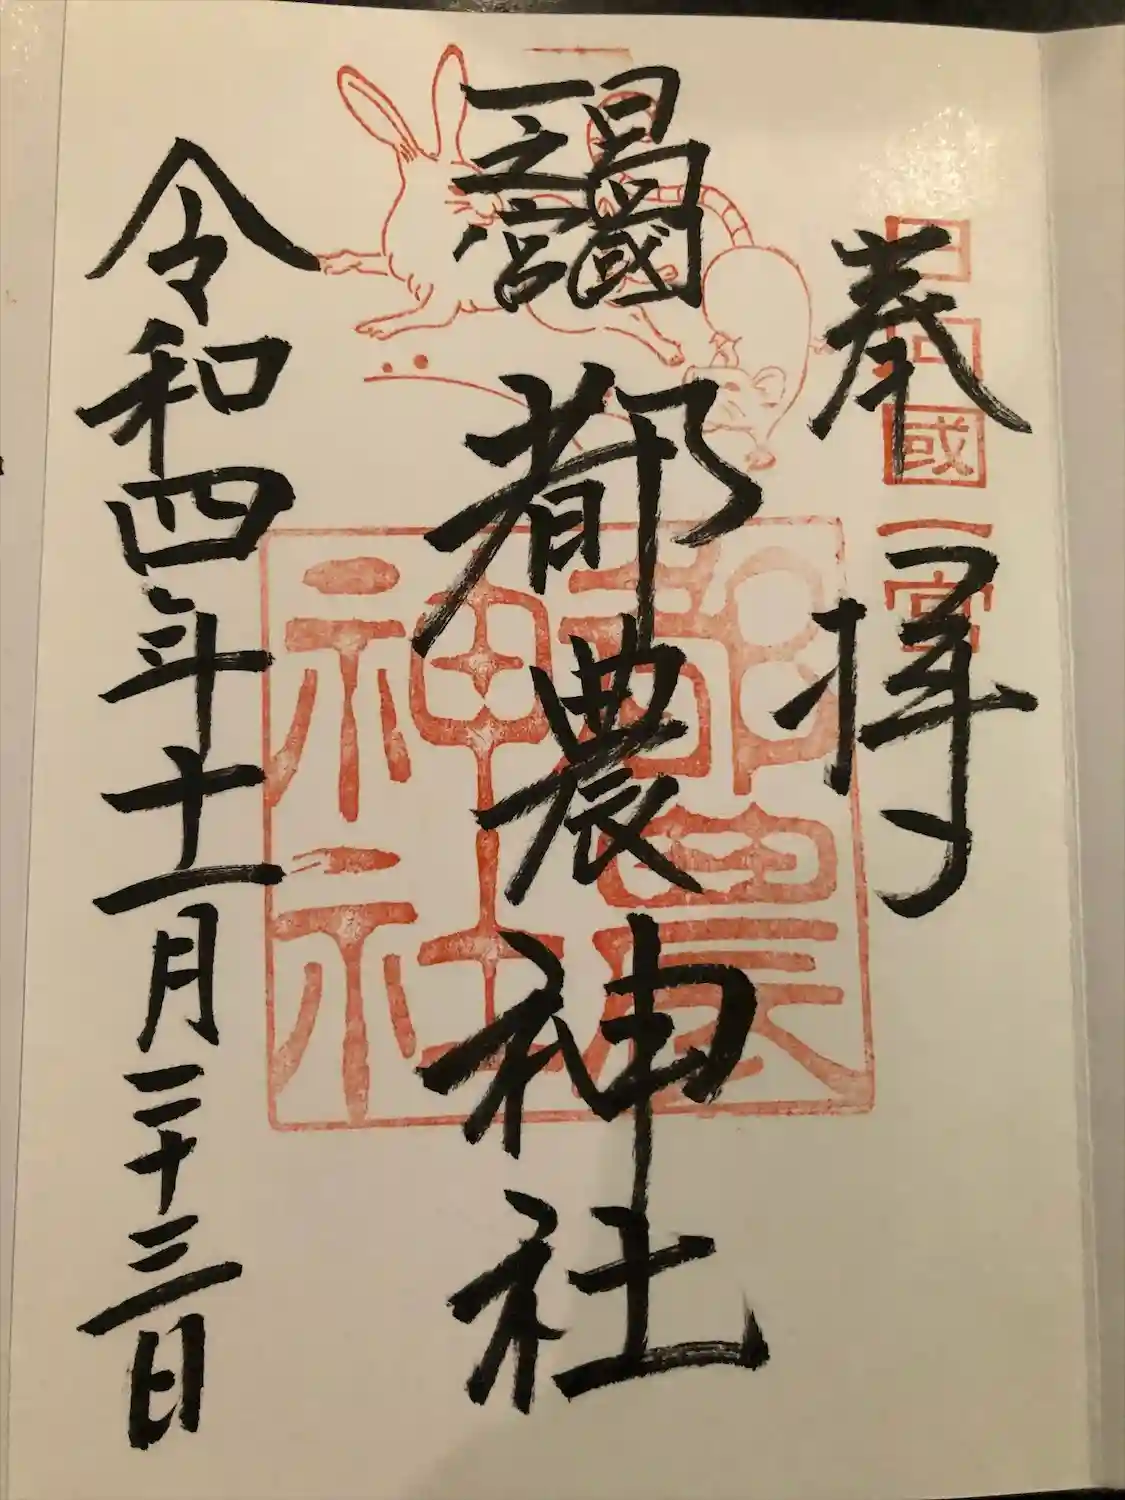 奉拝
日向國一宮
日向國
一之宮
都農神社
都農神社
令和四年十一月二十三日